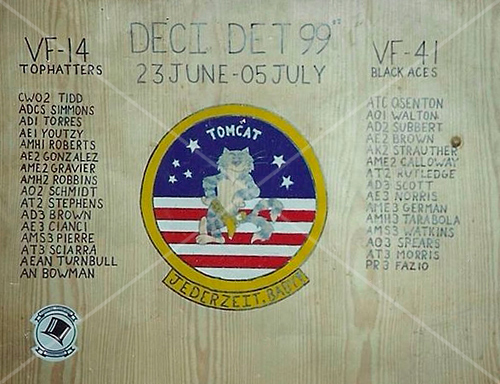 DECI DET 99"
23 JUNE-05 JULY
VF-14
TOPHATTERS
CWO2 TIDD
ADCS SIMMONS
AD1 TORRES
AE1 YOUTZY
AMH1 ROBERTS
AE2 GONZALEZ
AME2 GRAVIER
AMH2 ROBBINS
AO2 SCHMIDT
AT2 STEPHENS
AD3 BROWN
AE3 CIANCI
AMS3 PIERRE
AT3 SCIARRA
AEAN TURNBULL
AN BOWMAN
TOMCAT
JEDERZEIT,
VF-41
BLACK ACES
ATC OSENTON
AO1 WALTON
AD2 SUBBERT
AE2 BROWN
AK2 STRAUTHER
AME2 CALLOWAY
AT2 RUTLEDGE
AD3 SCOTT
AE3 NORRIS
AME3 GERMAN
AMH3 TARABOLA
AMS3 WATKINS
AO3 SPEARS
AT3 MORRIS
PR3 FAZIO